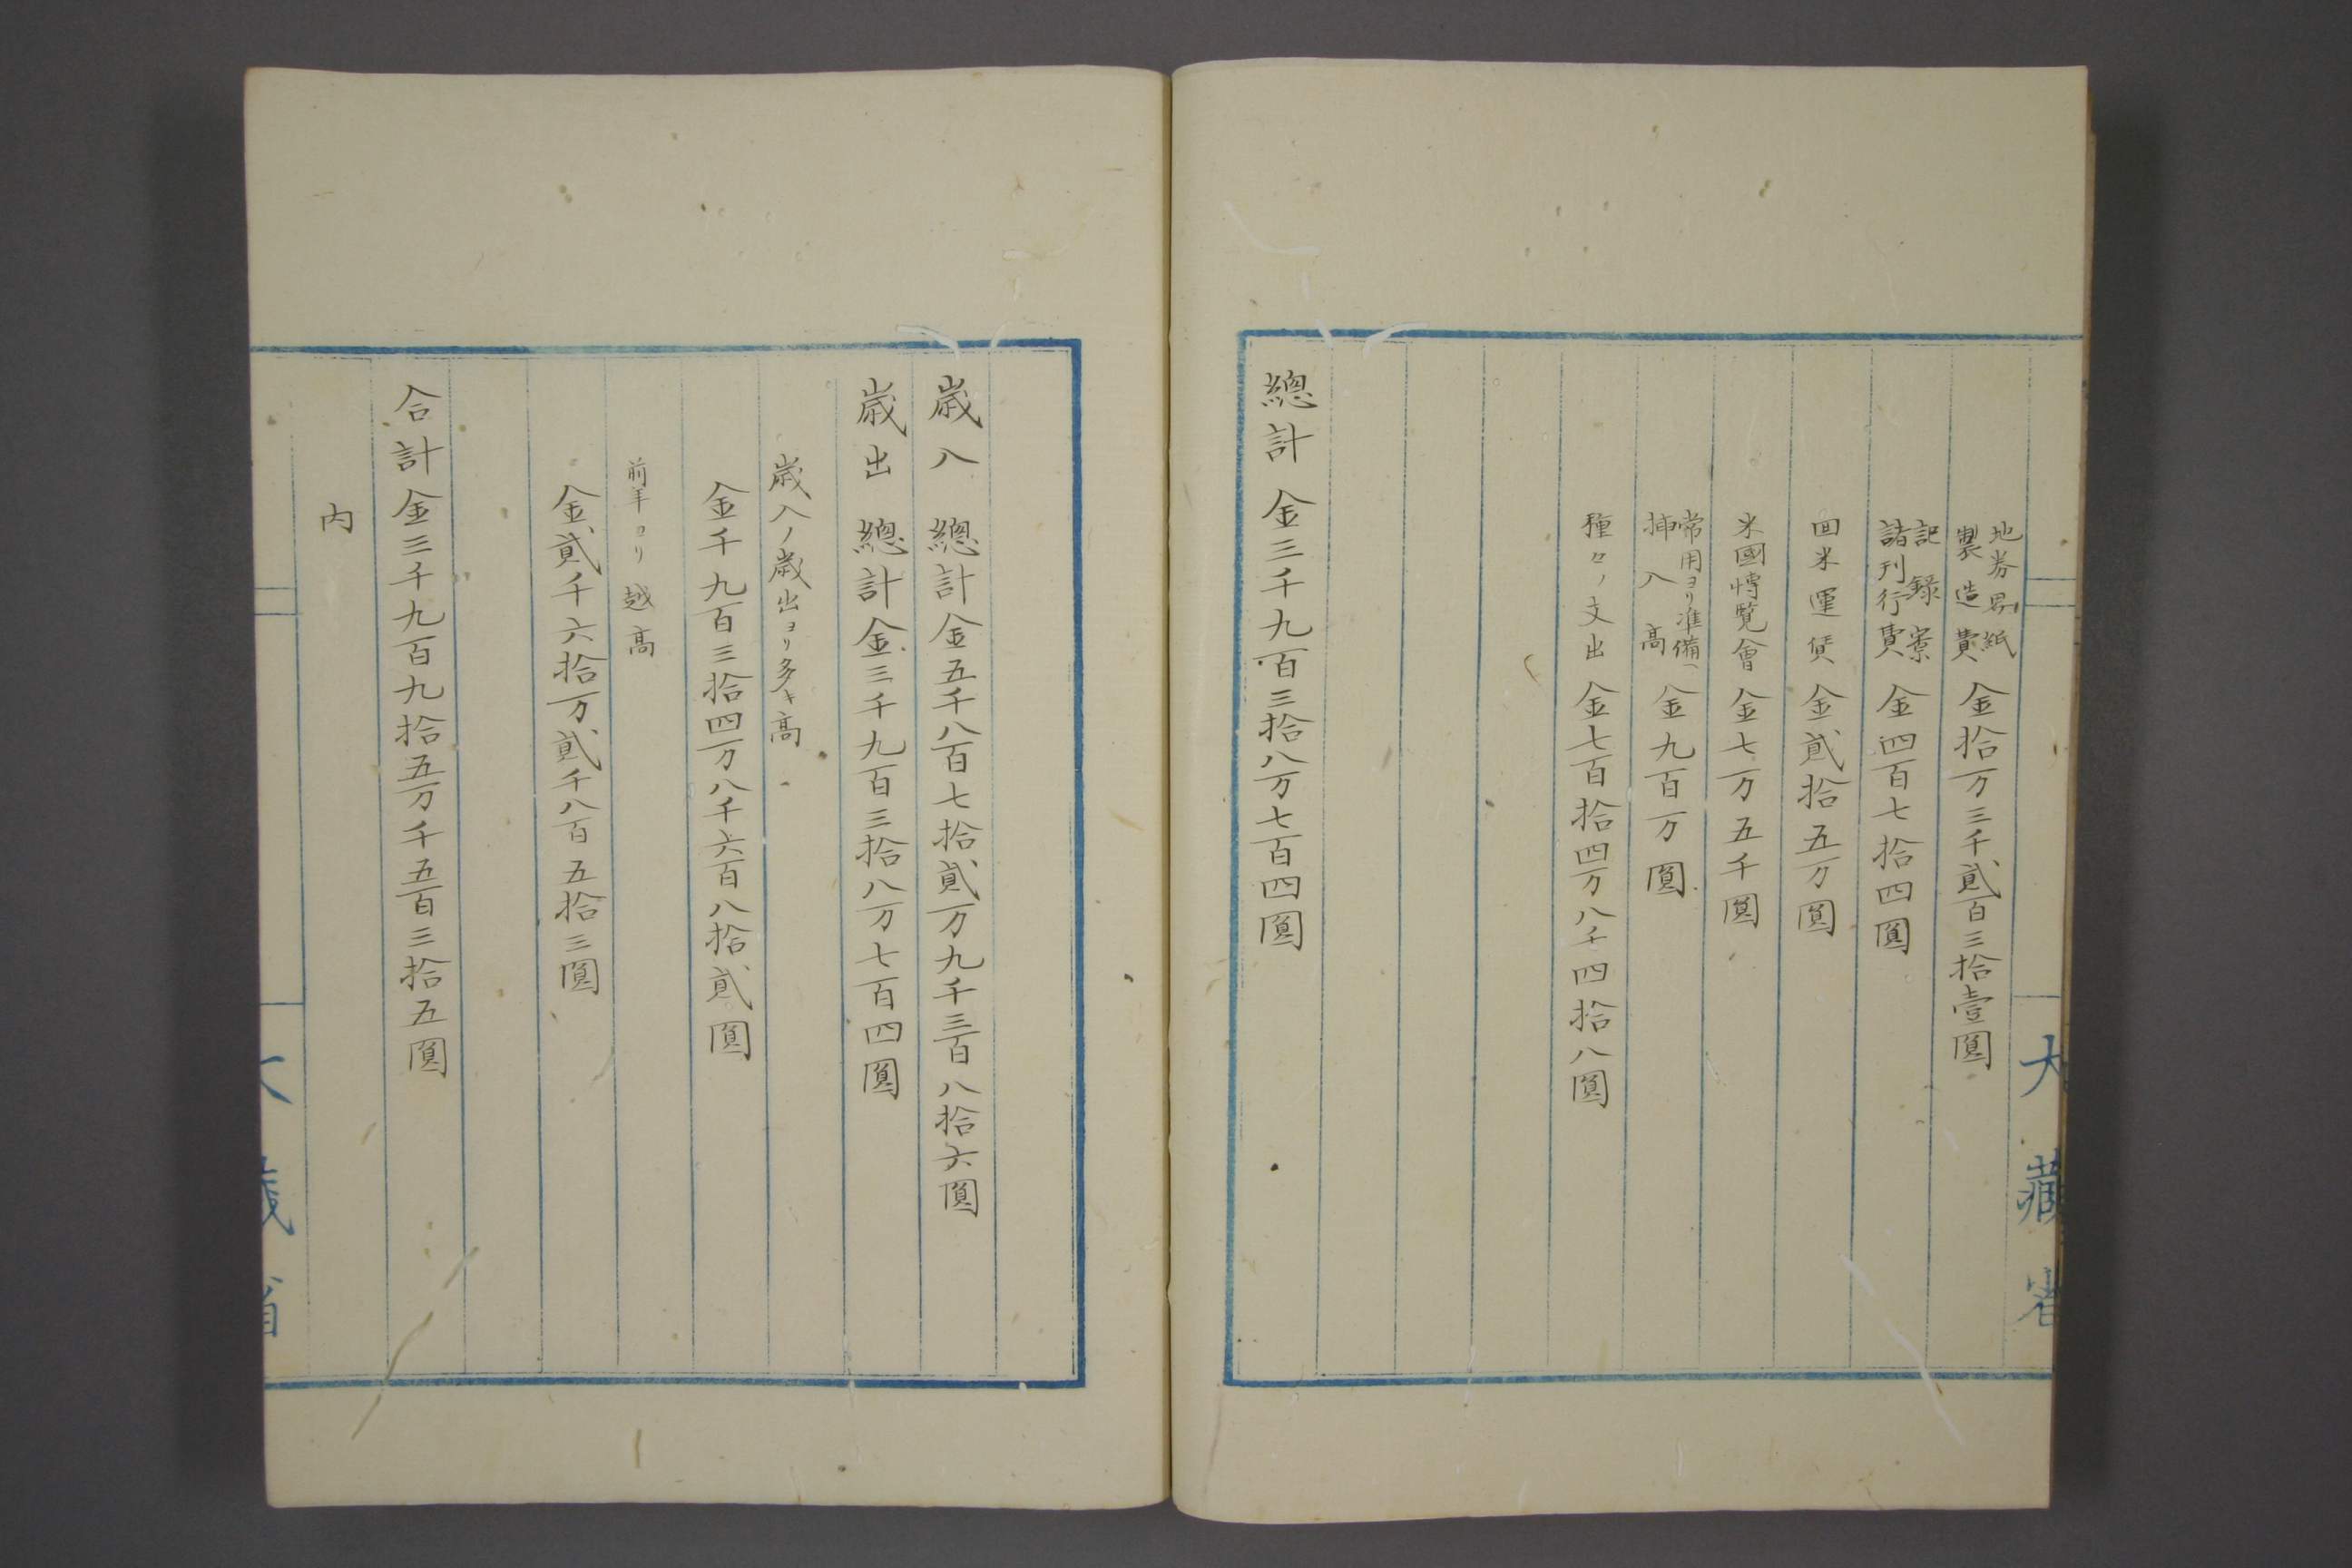 大藏省
地券界紙
製造費
金拾万三千貳百三拾壹圓
記録寮
諸刊行費
金四百七拾四圓
回米運賃 金貳拾五万圓
米國博覧會 金七万五千圓
常用ヨリ準備ヘ
挿入高
金九百万圓
種々ノ支出 金七百拾四万八千四拾八圓
總計 金三千九百三拾八万七百四圓
歳入 總計金五千八百七拾貳万九千三百八拾六圓
歳出 總計金三千九百三拾八万七百四圓
歳入ノ歳出ヨリ多キ高
金千九百三拾四万八千六百八拾貳圓
前年ヨリ越高
金貳千六拾万貳千八百五拾三圓
合計金三千九百九拾五万千五百三拾五圓
内
大藏省